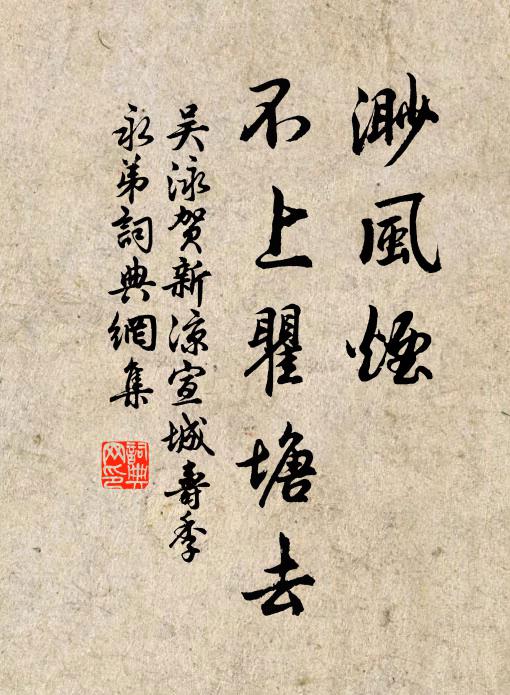 渺風煙
不上瞿塘去
吴泳贺新涼宣城壽季
永弟詞典網集
詞典网印